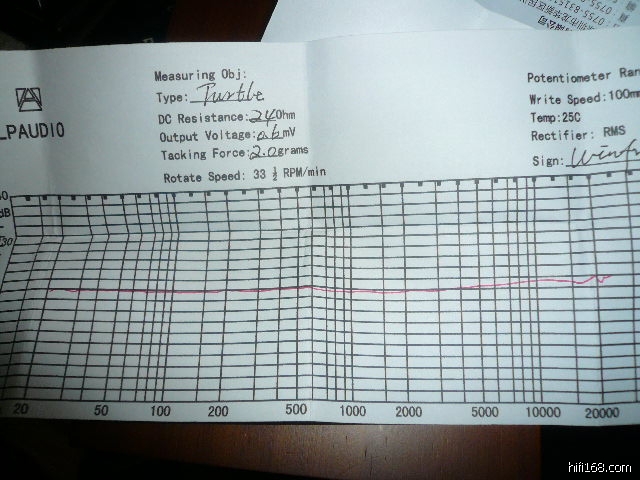 LPAUDIO
Measuring Obj:
Type: Turtle
DC Resistance: 24 Ohm
Output Voltage: 0.6 mV
Tacking Force: 2.0 grams
Rotate Speed: 33 ⅓ RPM/min
Potentiometer Ran
Write Speed: 100mm
Temp: 25C
Rectifier: RMS
Sign:
dB
30
20 50 100 200 500 1000 2000 5000 10000 20000
0755-8315
hifi168.com